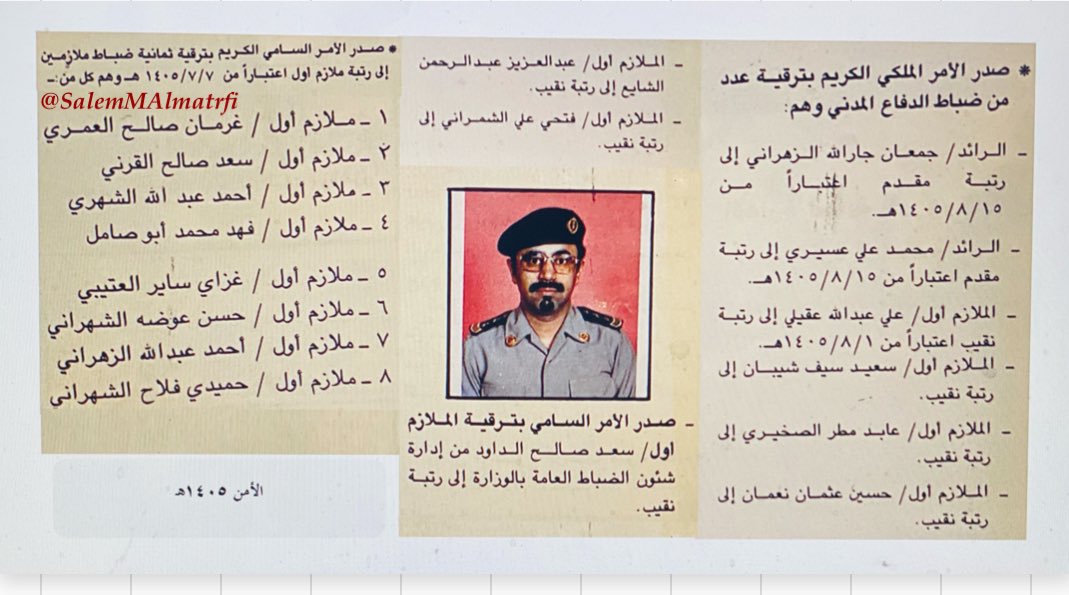 * صدر الأمر الملكي الكريم بترقية عدد
من ضباط الدفاع المدني وهم:
- الرائد/ جمعان جارالله الزهراني إلى
رتبة مقدم اعتباراً من
١٤٠٥/٨/١٥هـ.
- الرائد/ محمد علي عسيري إلى رتبة
مقدم اعتباراً من ١٤٠٥/٨/١٥هـ.
- الملازم أول/ علي عبدالله عقيلي إلى رتبة
نقيب اعتباراً من ١٤٠٥/٨/١هـ.
- الملازم أول/ سعيد سيف شيبان إلى
رتبة نقيب.
- الملازم أول/ عابد مطر الصخيري إلى
رتبة نقيب.
- الملازم أول/ حسين عثمان نعمان إلى
رتبة نقيب.
- الملازم أول/ عبدالعزيز عبدالرحمن
الشايع إلى رتبة نقيب.
- الملازم أول/ فتحي علي الشمراني إلى
رتبة نقيب.
- صدر الأمر السامي بترقية الملازم
أول/ سعد صالح الداود من إدارة
شئون الضباط العامة بالوزارة إلى رتبة
نقيب.
* صدر الأمر السامي الكريم بترقية ثمانية ضباط ملازمين
إلى رتبة ملازم أول اعتباراً من ١٤٠٥/٧/٧ هـ وهم كل من:ـ
@SalemMAlmatrfi
١ ـ ملازم أول / غرمان صالح العمري
٢ ـ ملازم أول / سعد صالح القرني
٣ ـ ملازم أول / أحمد عبد الله الشهري
٤ ـ ملازم أول / فهد محمد أبو صامل
٥ ـ ملازم أول / غزاي ساير العتيبي
٦ ـ ملازم أول / حسن عوضه الشهراني
٧ ـ ملازم أول / أحمد عبدالله الزهراني
٨ ـ ملازم أول / حميدي فلاح الشهراني
الأمن ١٤٠٥هـ